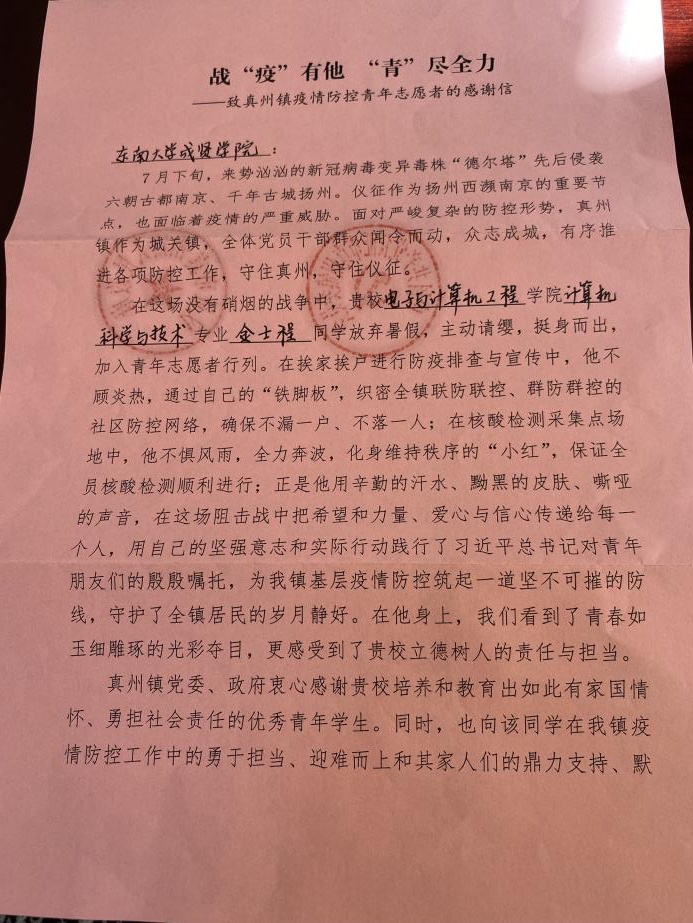 战“疫”有他 “青”尽全力
——致真州镇疫情防控青年志愿者的感谢信
东南大学成贤学院：
7月下旬，来势汹汹的新冠病毒变异毒株“德尔塔”先后侵袭
六朝古都南京、千年古城扬州。仪征作为扬州西濒南京的重要节
点，也面临着疫情的严重威胁。面对严峻复杂的防控形势，真州
镇作为城关镇，全体党员干部群众闻令而动，众志成城，有序推
进各项防控工作，守住真州，守住仪征。
在这场没有硝烟的战争中，贵校电子与计算机工程学院计算机
科学与技术专业金士程同学放弃暑假，主动请缨，挺身而出，
加入青年志愿者行列。在挨家挨户进行防疫排查与宣传中，他不
顾炎热，通过自己的“铁脚板”，织密全镇联防联控、群防群控的
社区防控网络，确保不漏一户、不落一人；在核酸检测采集点场
地中，他不惧风雨，全力奔波，化身维持秩序的“小红”，保证全
员核酸检测顺利进行；正是他用辛勤的汗水、黝黑的皮肤、嘶哑
的声音，在这场阻击战中把希望和力量、爱心与信心传递给每一
个人，用自己的坚强意志和实际行动践行了习近平总书记对青年
朋友们的殷殷嘱托，为我镇基层疫情防控筑起一道坚不可摧的防
线，守护了全镇居民的岁月静好。在他身上，我们看到了青春如
玉细雕琢的光彩夺目，更感受到了贵校立德树人的责任与担当。
真州镇党委、政府衷心感谢贵校培养和教育出如此有家国情
怀、勇担社会责任的优秀青年学生。同时，也向该同学在我镇疫
情防控工作中的勇于担当、迎难而上和其家人们的鼎力支持、默